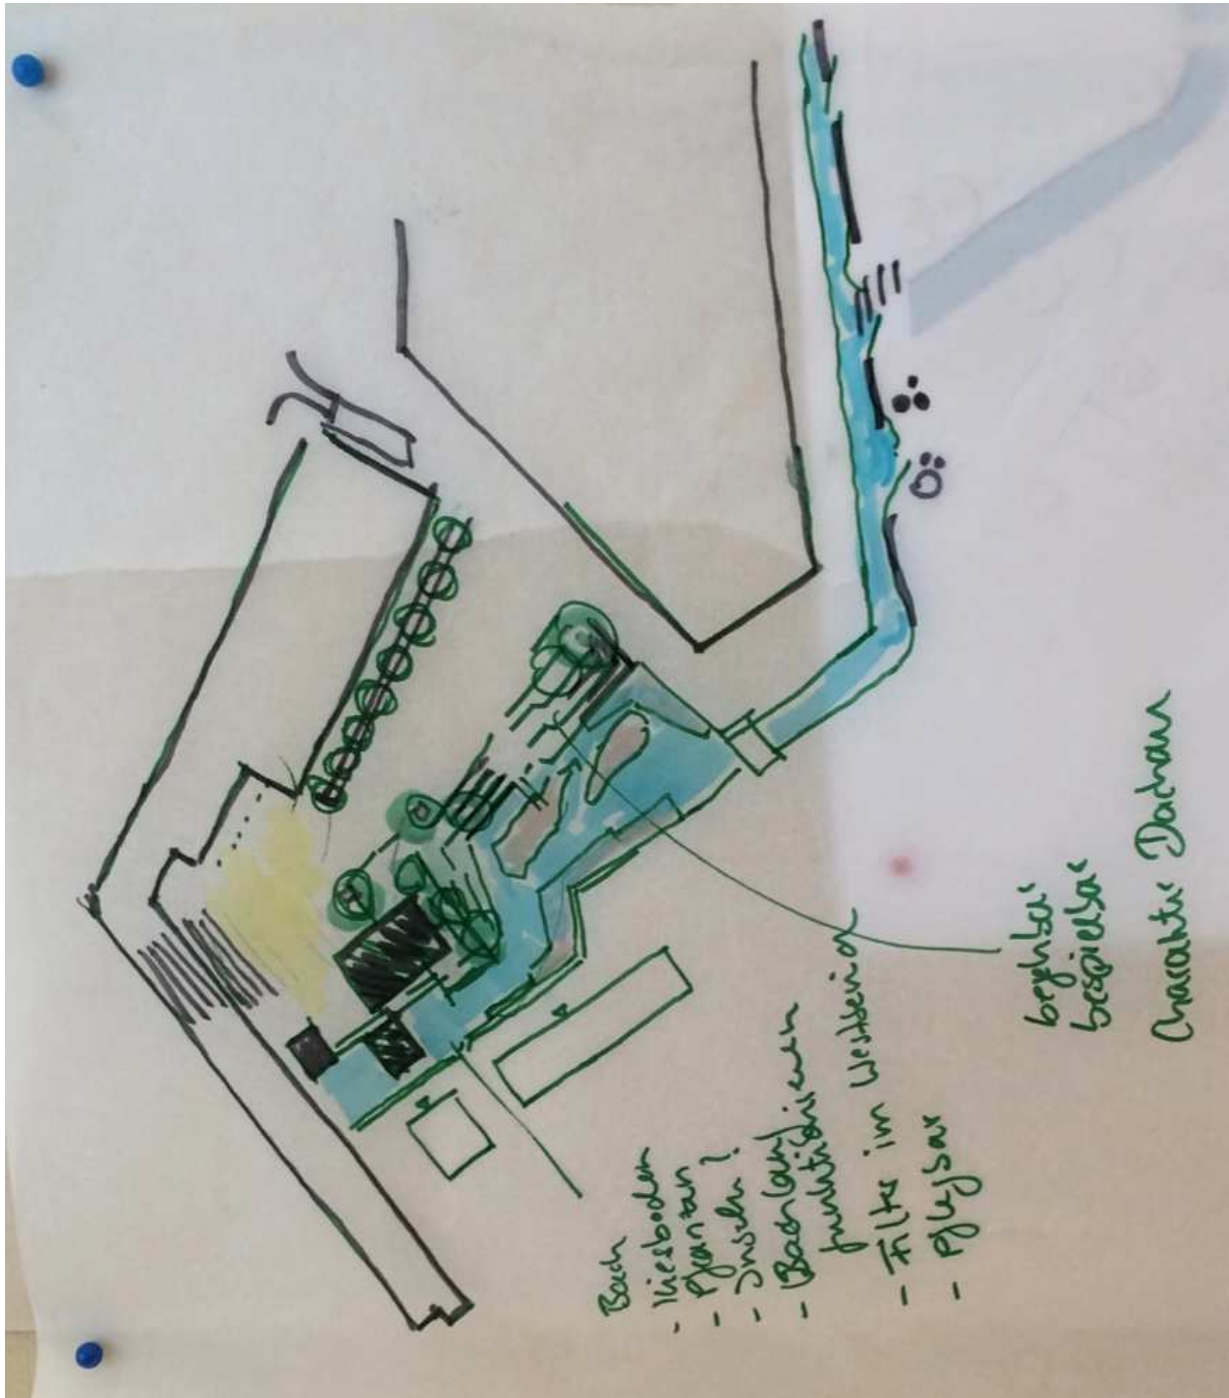 Bach
- Kiesboden
- Pflanzen
- Inseln?
- (Bachlauf)
funktionieren
- Filter im Westbereich
- Pflegbar
begehbar
bespielbar
Charakter Dachau